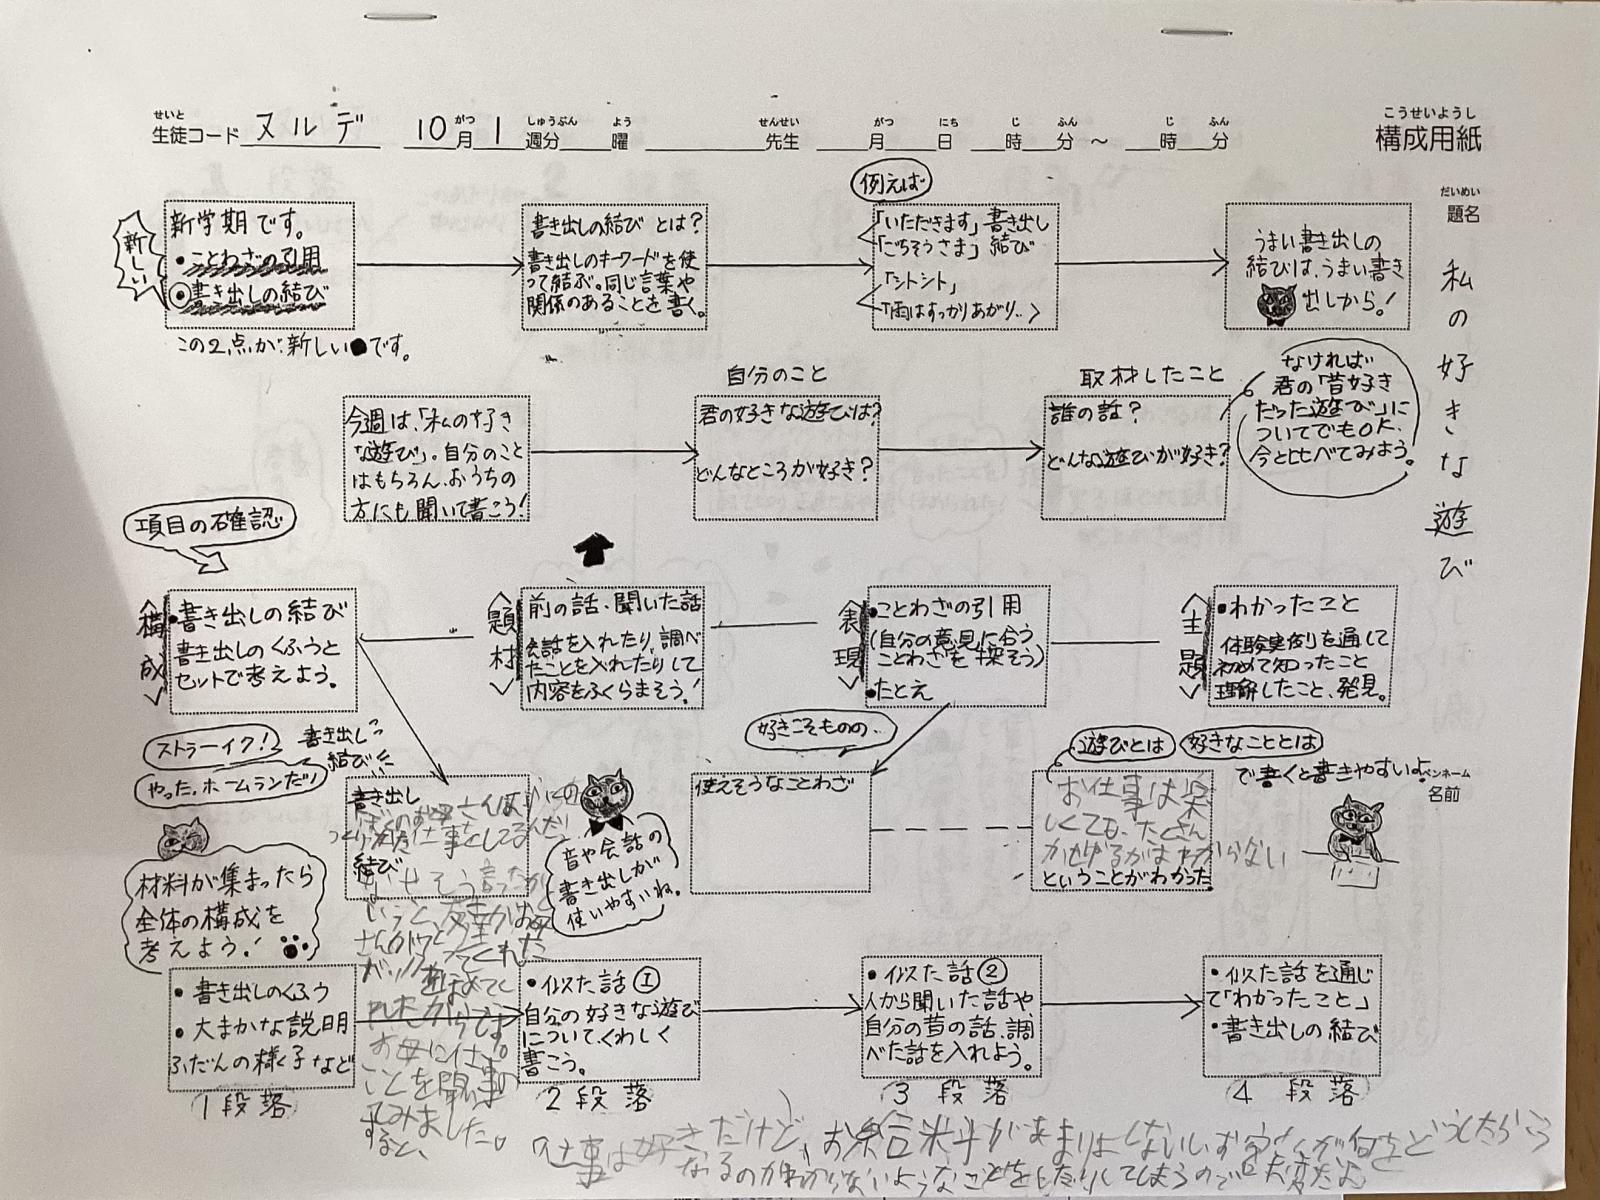 せいと がつ しゅうぶん よう せんせい がつ にち じ ふん じ ふん
生徒コード ヌルデ 10月1週分 曜 先生 月 日 時 分 ～ 時 分
こうせいようし
構成用紙
だいめい
題名
私の好きな遊び
新しい
新学期です。
・ことわざの引用
◉書き出しの結び
この2点が新しい●です。
書き出しの結び とは?
書き出しのキーワードを使
って結ぶ。同じ言葉や
関係のあることを書く。
例えば
「いただきます」書き出し
「ごちそうさま」結び
「シトシト」
「雨はすっかりあがり‥
うまい書き出しの
結びは、うまい書き
出しから!
今週は、「私の好き
な遊び」。自分のこと
はもちろん、おうちの
方にも聞いて書こう!
自分のこと
君の好きな遊びは?
どんなところが好き?
取材したこと
誰の話?
どんな遊びが好き?
なければ
君の「昔好き
だった遊び」に
ついてでもOK.
今と比べてみよう。
項目の確認
〈構成〉
・書き出しの結び
書き出しのくふうと
セットで考えよう。
〈題材〉
前の話、聞いた話
会話を入れたり、調べ
たことを入れたりして
内容をふくらまそう!
〈表現〉
・ことわざの引用
(自分の意見に合う
ことわざを探そう)
・たとえ
〈主題〉
・わかったこと
体験実例を通して
初めて知ったこと
理解したこと、発見。
ストラーイク!
やった。ホームランだ!
書き出し
結び
書き出し
結び
音や会話の
書き出しが
使いやすいね。
好きこそものの‥
使えそうなことわざ
遊びとは
好きなこととは
で書くと書きやすいよ。
お仕事は楽
しくても、たくさん
かせげるかはわからない
ということがわかった。
ペンネーム
名前
材料が集まったら
全体の構成を
考えよう!
・書き出しのくふう
・大まかな説明
ふだんの様子など
1段落
・似た話①
自分の好きな遊び
について、くわしく
書こう。
2段落
・似た話②
人から聞いた話や、
自分の昔の話、調
べた話を入れよう。
3段落
・似た話を通じ
て「わかったこと」
・書き出しの結び
4段落
お母に仕事の
ことを聞い
てみました。
すると、
仕事は好きだけど、お給料があまりよくないしお客さんが何をどうしたらこう
なるのかわからないようなことをしたりしてしまうので大変だよ